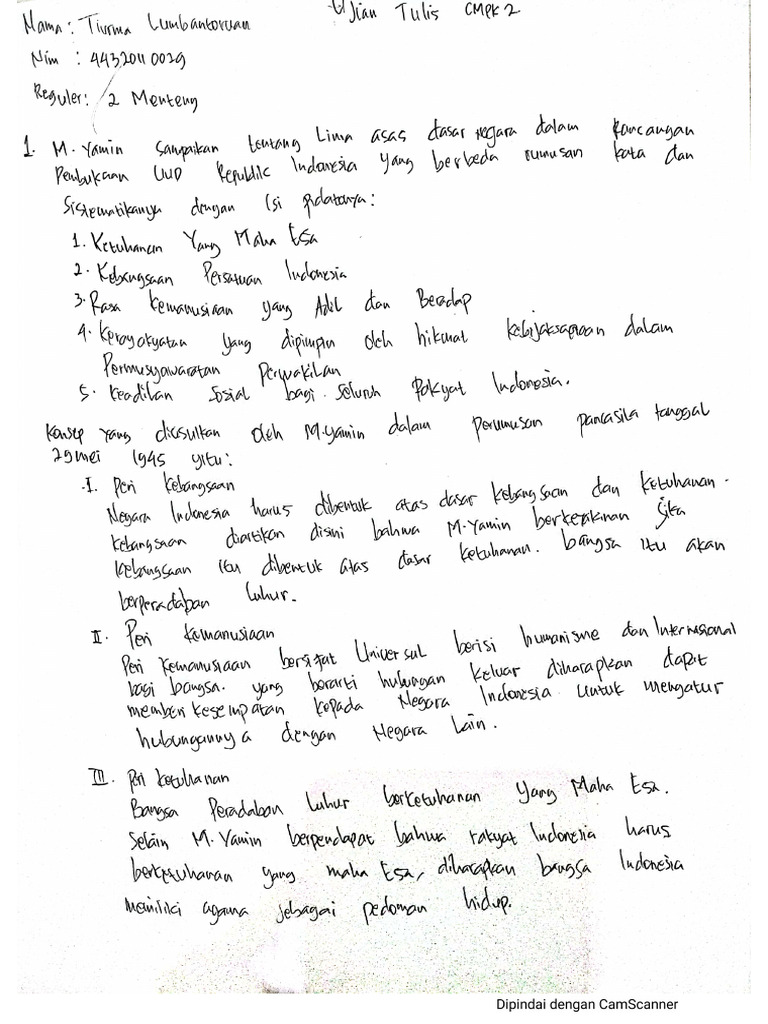 Ujian Tulis CMPK 2
Nama : Tiurma Lumbantoruan
Nim : 4432011 0029
Reguler: 2 Menteng
1. M. Yamin sampaikan tentang Lima asas dasar Negara dalam Rancangan
Pembukaan UUD Republic Indonesia yang berbeda rumusan kata dan
Sistematikanya dengan Isi pidatonya :
1. Ketuhanan Yang Maha Esa
2. Kebangsaan Persatuan Indonesia
3. Rasa Kemanusiaan yang Adil dan Beradap
4. Kerayakyatan yang dipimpin oleh hikmat kebijaksanaan dalam
Permusyawaratan Perwakilan
5. Keadilan Sosial bagi Seluruh Rakyat Indonesia.
Konsep yang diusulkan oleh M.Yamin dalam perumusan pancasila tanggal
29 mei 1945 yitu :
I. Peri Kebangsaan
Negara Indonesia harus dibentuk atas dasar kebangsaan dan Ketuhanan.
Kebangsaan diartikan disini bahwa M.Yamin berkeyakinan jika
Kebangsaan itu dibentuk atas dasar ketuhanan. bangsa itu akan
berperadaban luhur.
II. Peri Kemanusiaan
Peri Kemanusiaan bersifat Universal berisi humanisme dan Internasional
bagi bangsa. yang berarti hubungan keluar diharapkan dapat
memberi kesempatan kepada Negara Indonesia untuk mengatur
hubungannya dengan Negara Lain.
III. Peri Ketuhanan
Bangsa Peradaban Luhur berketuhanan Yang Maha Esa.
Selain M.Yamin berpendapat bahwa rakyat Indonesia harus
berketuhanan yang maha Esa, diharapkan bangsa Indonesia
memiliki agama sebagai pedoman hidup.
Dipindai dengan CamScanner